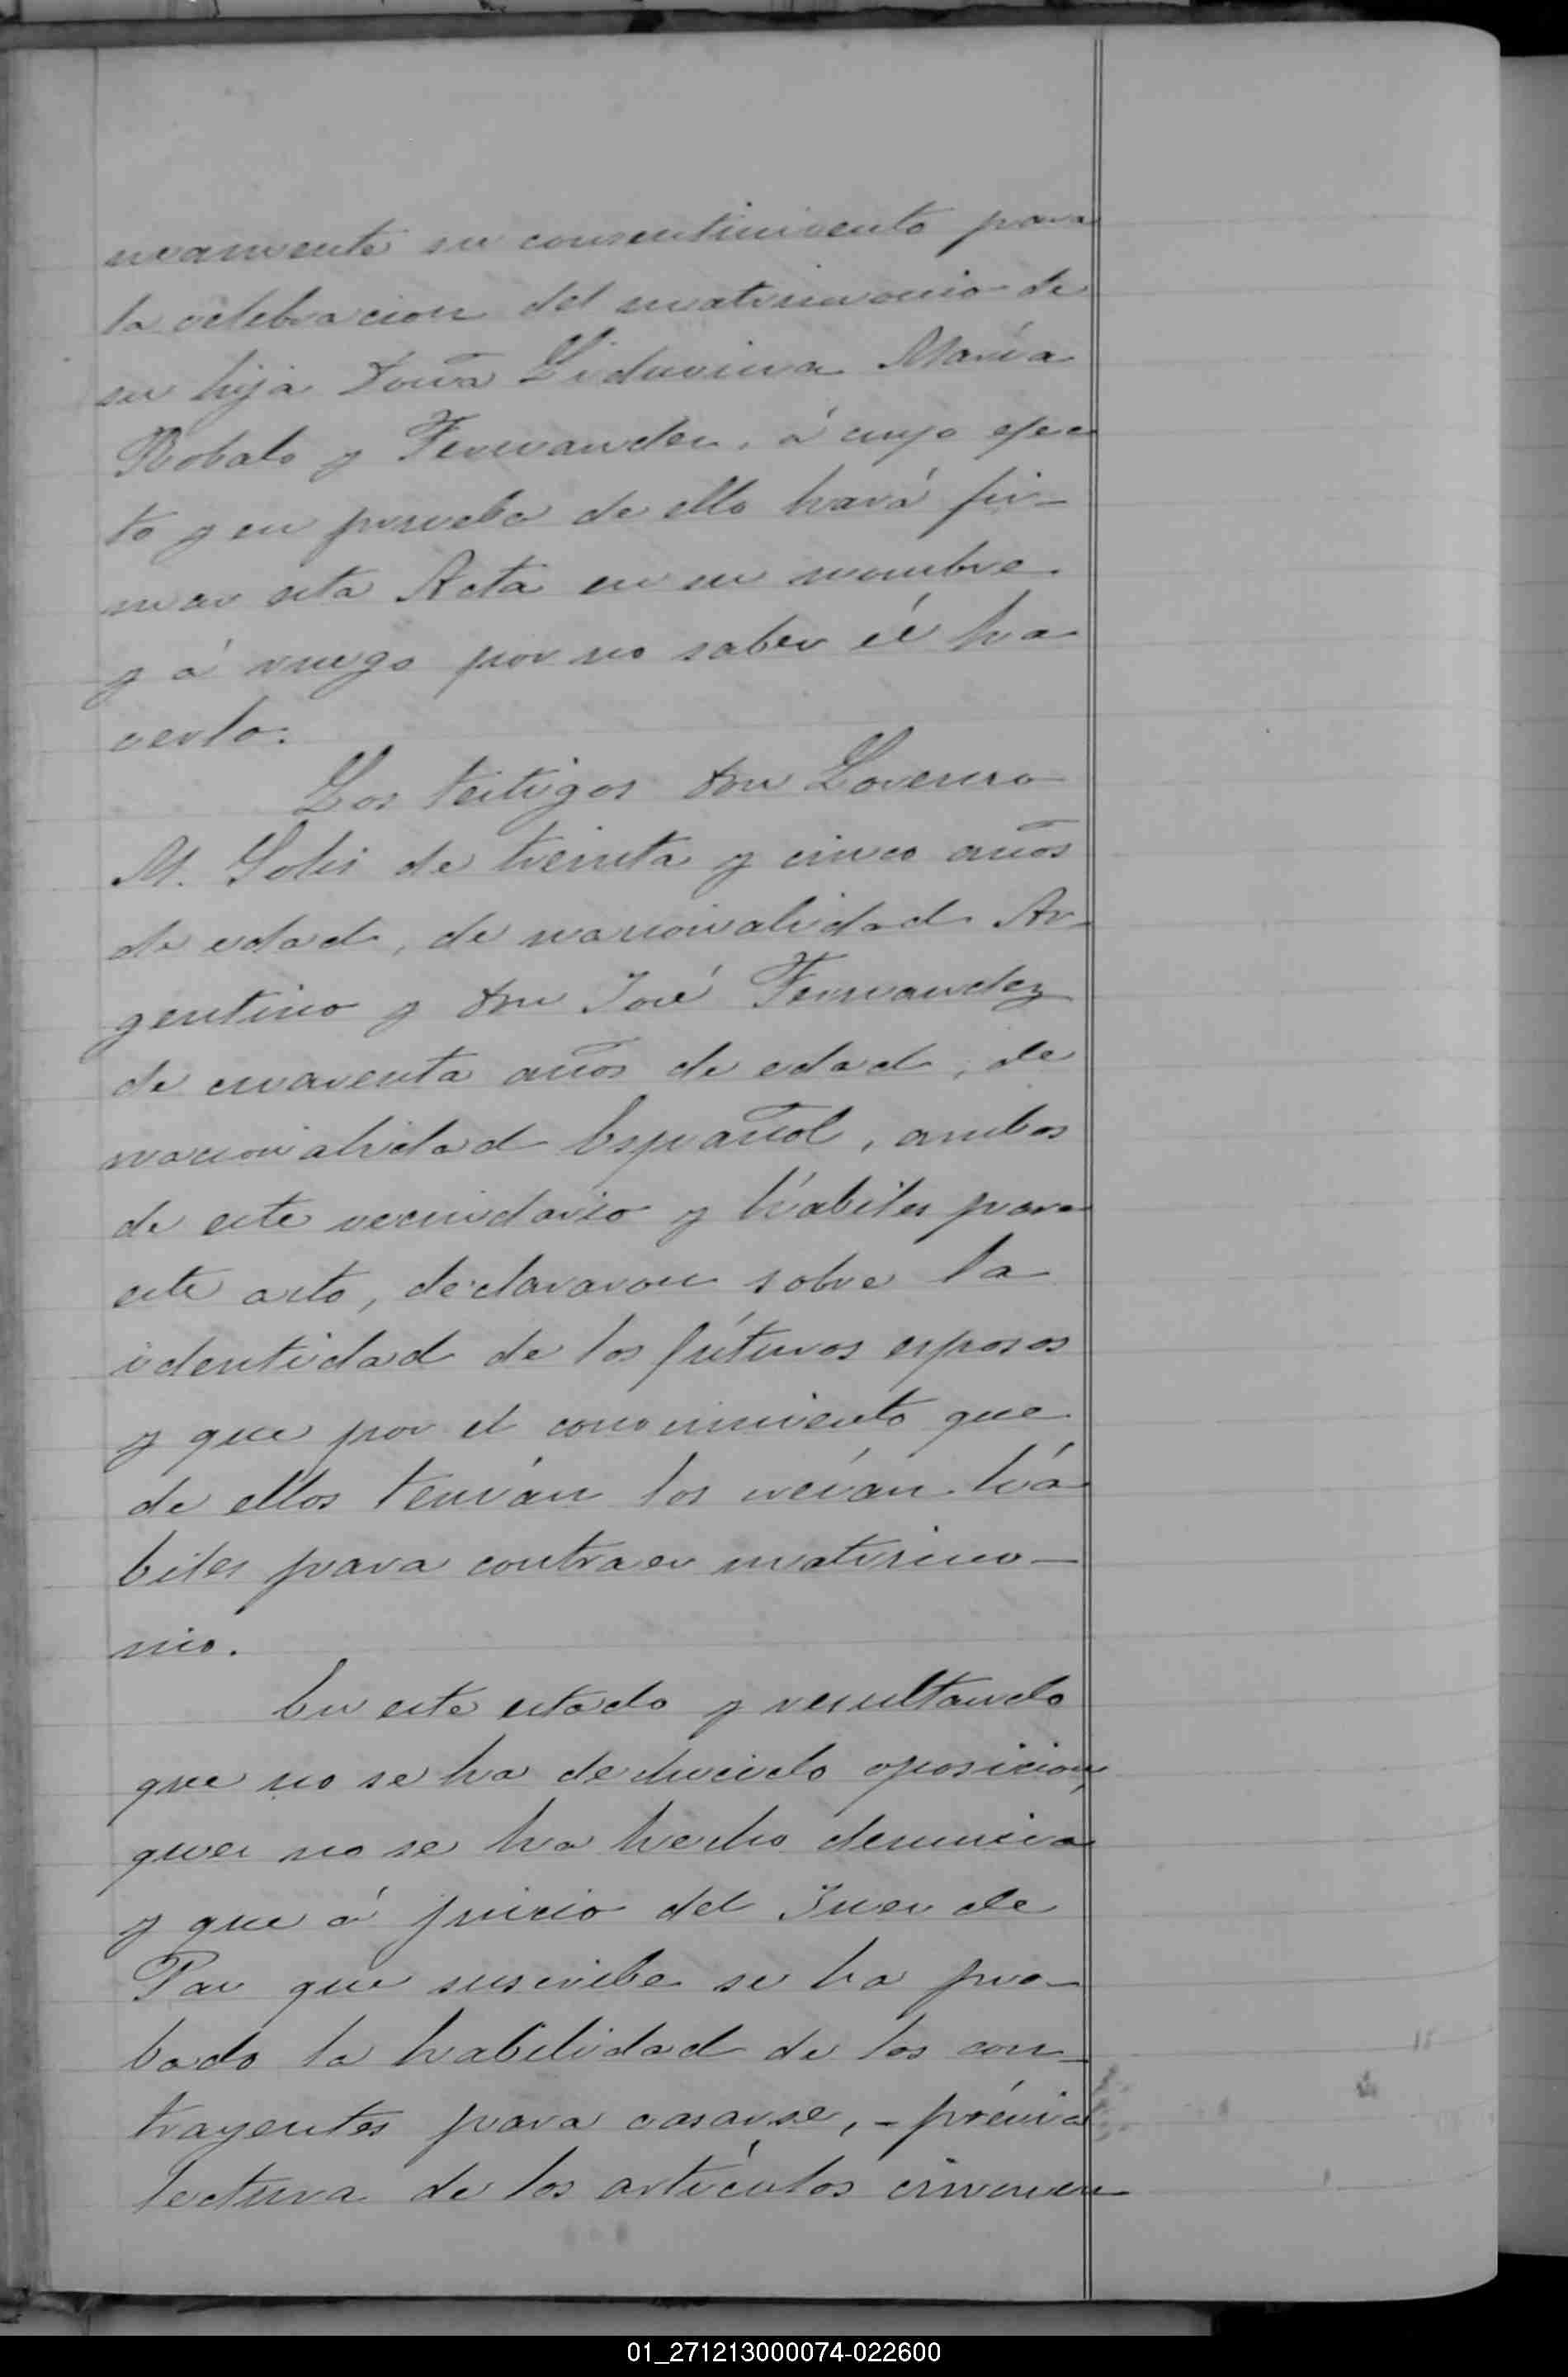 mamente su consentimiento para
la celebracion del matrimonio de
su hija Doña Liduvina María
Robalo y Fernandez, á cuyo efec
to y en prueba de ello hará fir-
mar esta Acta en su nombre
y á ruego por no saber él ha
cerlo.
Los testigos Don Lorenzo
M. Solis de treinta y cinco años
de edad, de nacionalidad Ar-
gentino y Don José Fernandez
de cuarenta años de edad, de
nacionalidad Español, ambos
de este vecindario y hábiles para
este acto, declararon sobre la
identidad de los fúturos esposos
y que por el conocimiento que
de ellos tenían los creían há
biles para contraer matrimo-
nio.
En este estado y resultando
que no se ha deducido oposicion,
que no se ha hecho denuncia
y que á juicio del Juez de
Paz que suscribe se ha pro-
bado la habilidad de los con-
trayentes para casarse, - prévia
lectura de los artículos cincuen
01_271213000074-022600